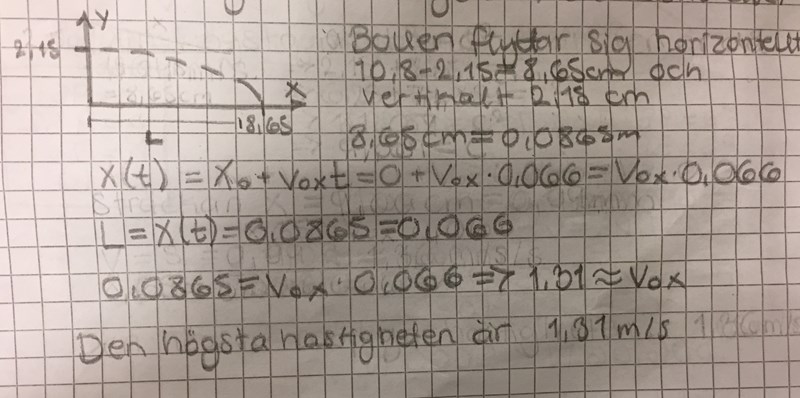 Y
2,15
X
8,65
L
Bollen flyttar sig horizontellt
10,8-2,15=8,65cm och
vertikalt 2,15 cm
8,65cm=0,0865m
X(t) = X₀ + V₀xt = 0 + V₀x · 0,066 = V₀x · 0,066
L = X(t) = 0,0865 = 0,066
0,0865 = V₀x · 0,066 => 1,31 ≈ V₀x
Den högsta hastigheten är 1,31 m/s